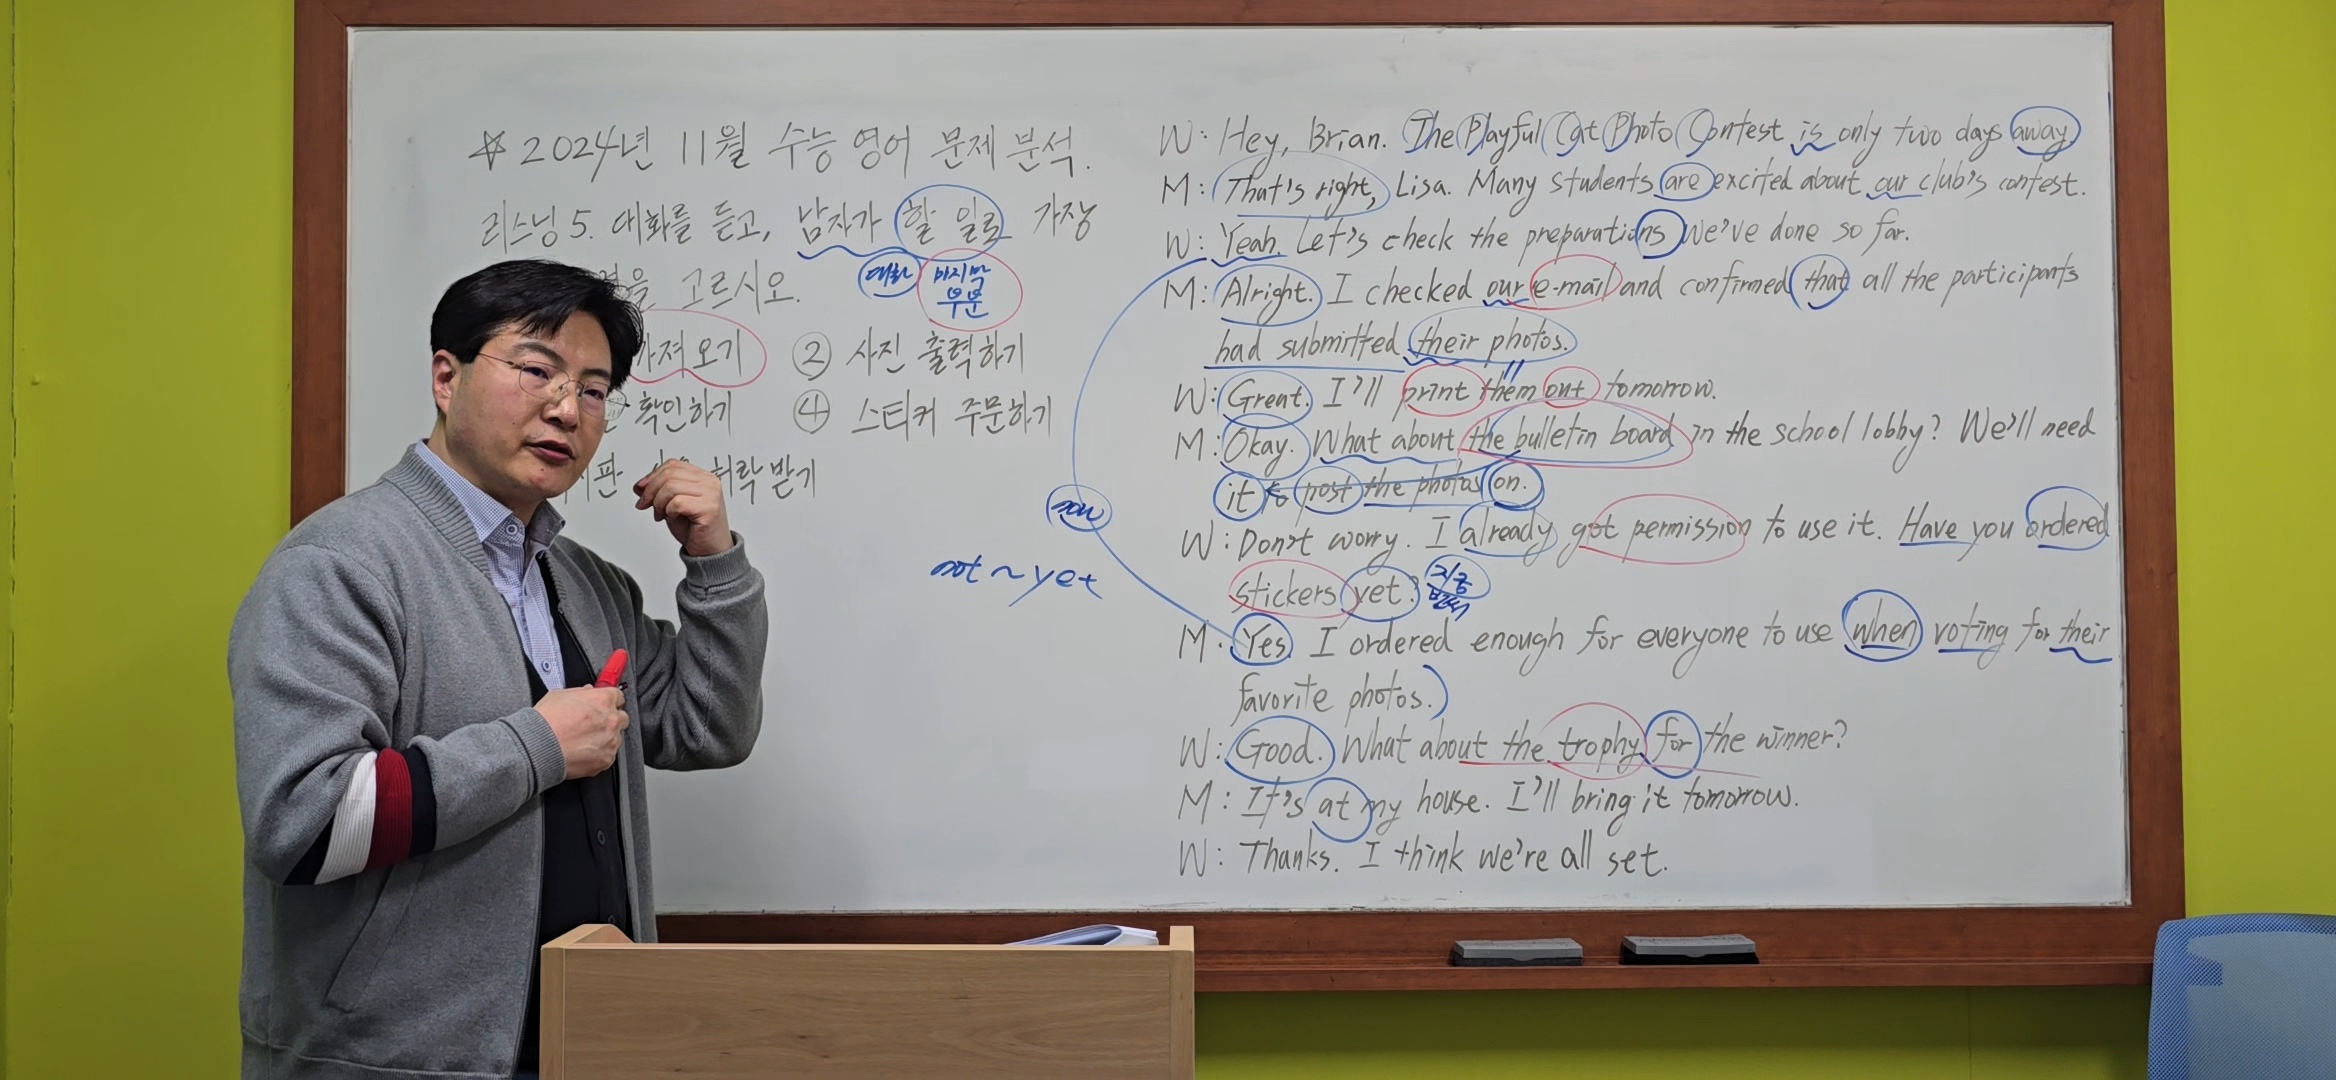 ☆ 2024년 11월 수능 영어 문제 분석.
리스닝 5. 대화를 듣고, 남자가 할 일로 가장
을 고르시오.
대화 마지막 부분
가져오기 ② 사진 출력하기
확인하기 ④ 스티커 주문하기
시판 허락 받기
not ~ yet
now
W: Hey, Brian. The Playful Cat Photo Contest is only two days away.
M: That's right, Lisa. Many students are excited about our club's contest.
W: Yeah. Let's check the preparations we've done so far.
M: Alright. I checked our e-mail and confirmed that all the participants
had submitted their photos.
W: Great. I'll print them out tomorrow.
M: Okay. What about the bulletin board in the school lobby? We'll need
it to post the photos on.
W: Don't worry. I already got permission to use it. Have you ordered
stickers yet?
M: Yes. I ordered enough for everyone to use when voting for their
favorite photos.
W: Good. What about the trophy for the winner?
M: It's at my house. I'll bring it tomorrow.
W: Thanks. I think we're all set.